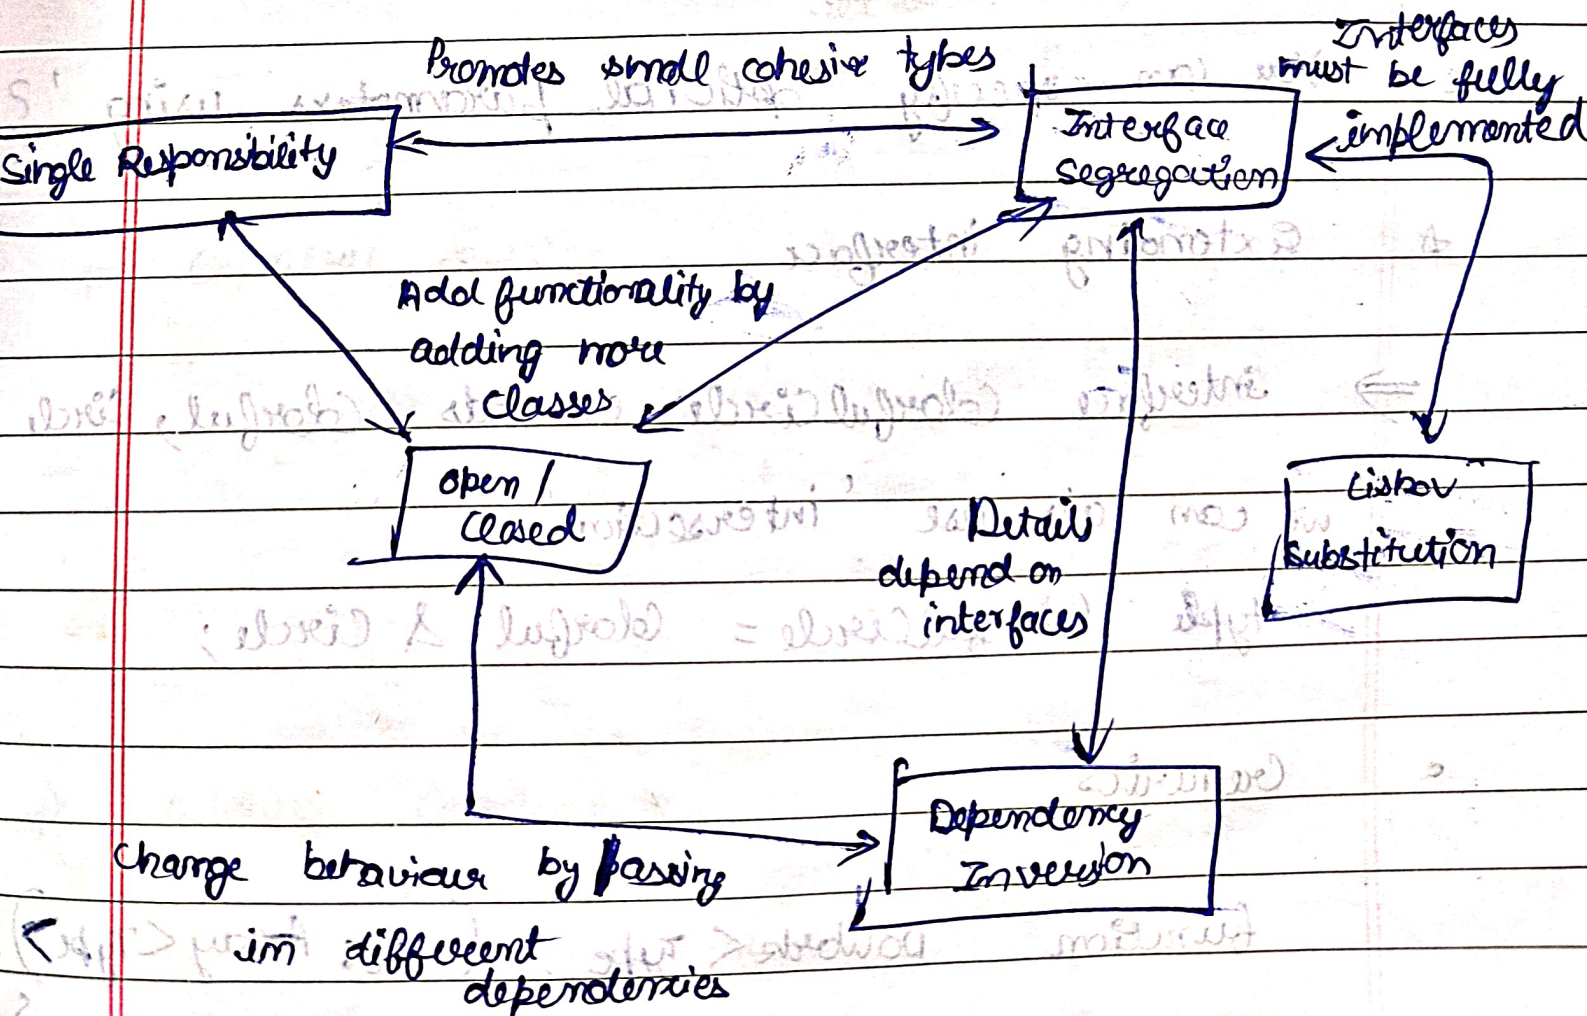 Promotes small cohesive types
Interfaces
must be fully
implemented
Single Responsibility
Interface
Segregation
Add functionality by
adding more
classes
Open /
Closed
Details
depend on
interfaces
Liskov
Substitution
Dependency
Inversion
Change behaviour by passing
in different
dependencies